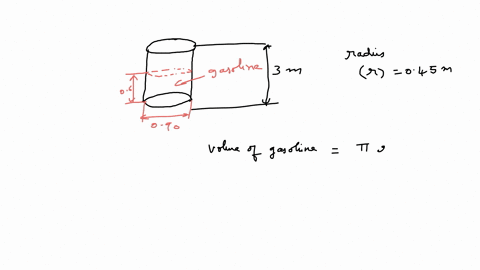 radius
(r) = 0.45 m
gasoline
3 m
0.6
0.90
volume of gasoline = π